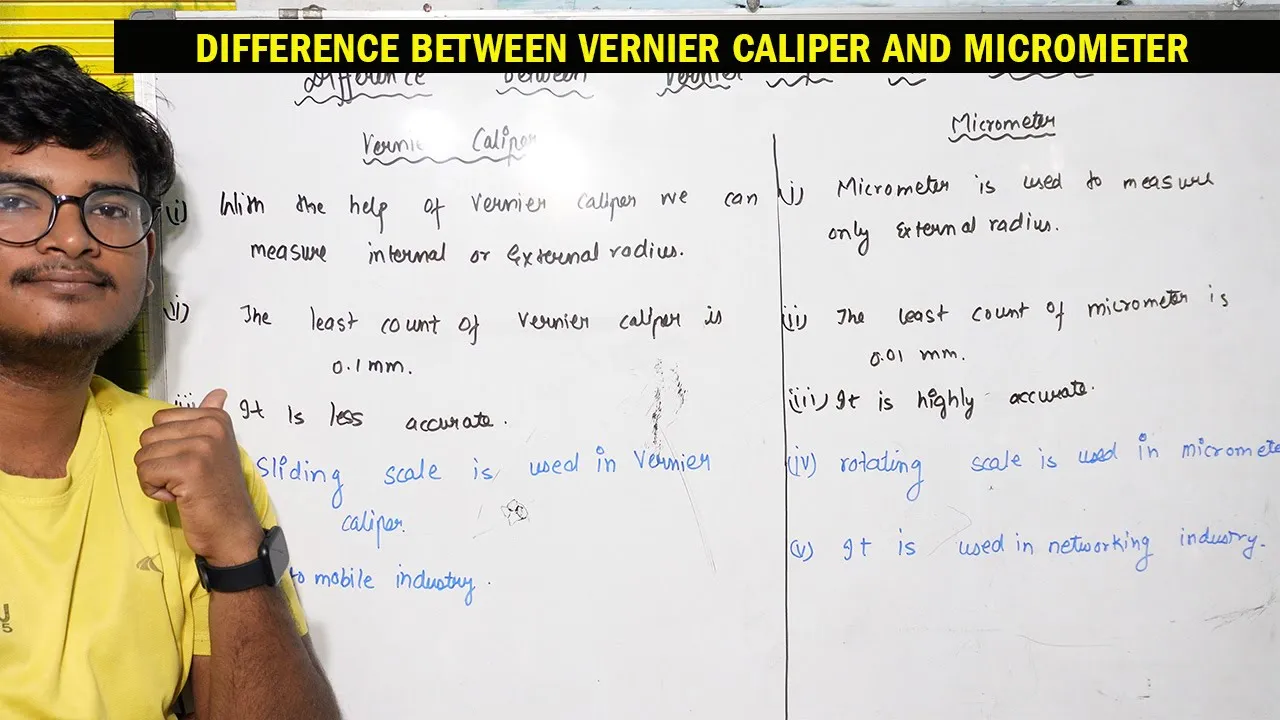 DIFFERENCE BETWEEN VERNIER CALIPER AND MICROMETER
Difference between Vernier
Vernier Caliper
(i) With the help of Vernier caliper we can
measure internal or External radius.
(ii) The least count of Vernier caliper is
0.1 mm.
(iii) It is less accurate.
Sliding scale is used in Vernier
caliper.
to mobile industry.
Micrometer
(i) Micrometer is used to measure
only External radius.
(ii) The least count of micrometer is
0.01 mm.
(iii) It is highly accurate.
(iv) rotating scale is used in micromete
(v) It is used in networking industry.